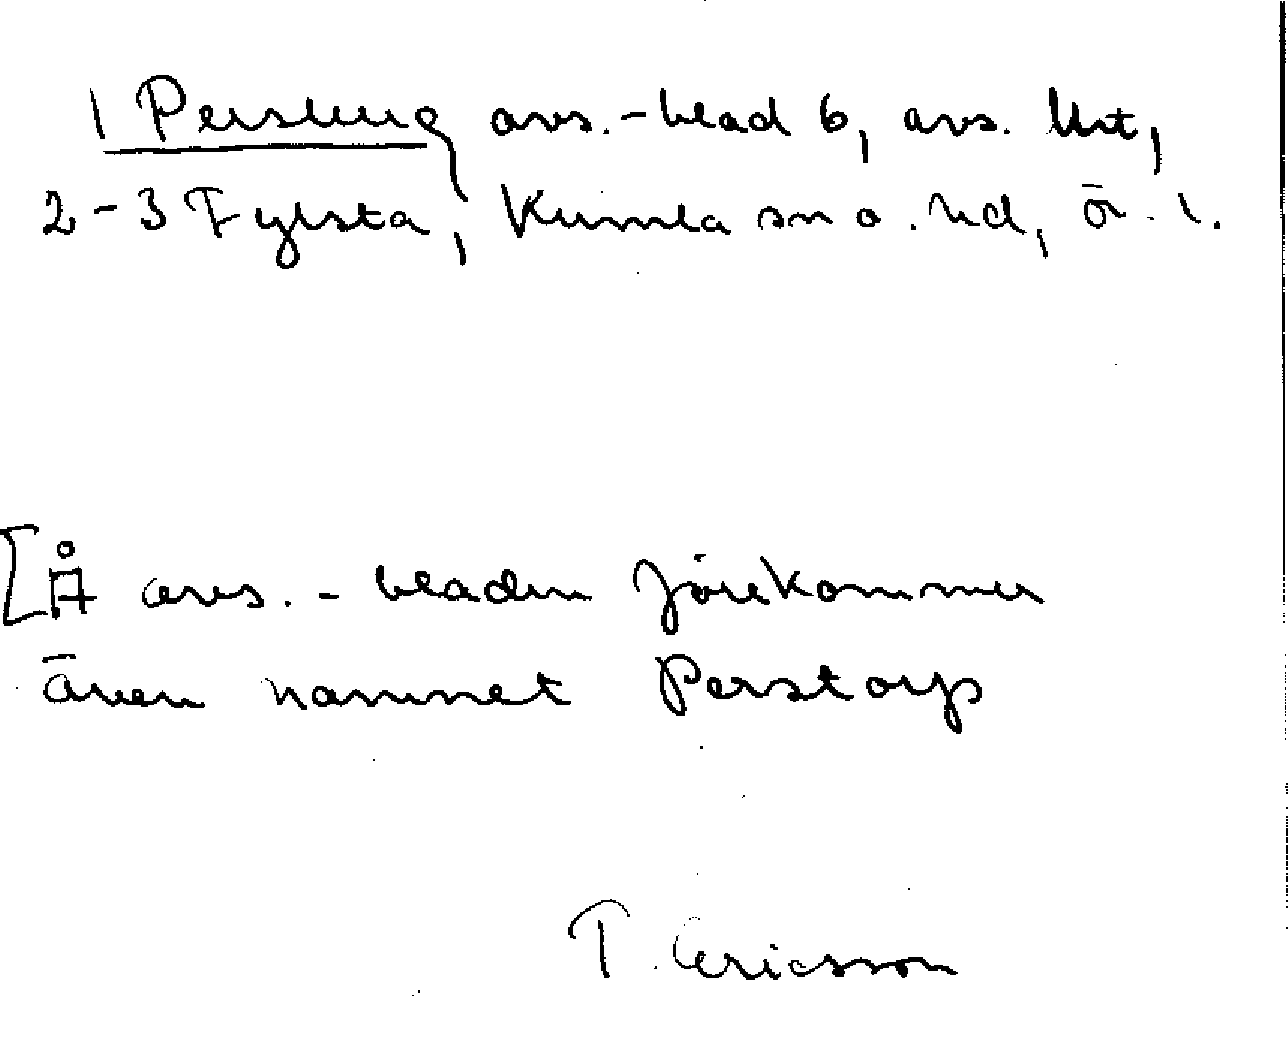 1 Persberg avs.-blad 6, avs. Urt,
2-3 Fylsta, Kumla sn o. hd, Ör. l.
[Å avs.-bladen förekommer
även namnet Perstorp
T. Ericsson